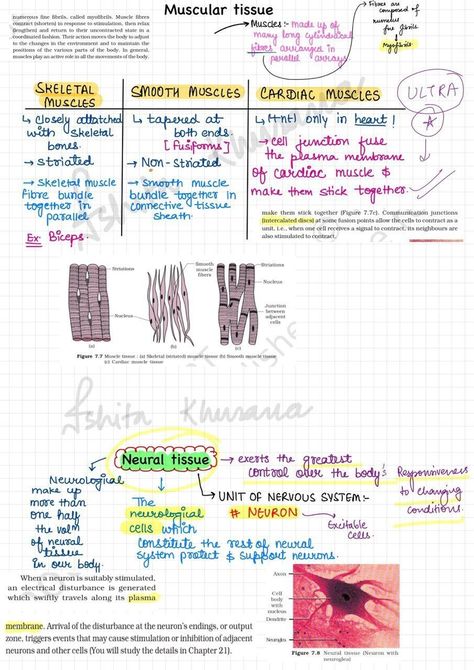 Muscular tissue
numerous fine fibrils, called myofibrils. Muscle fibres
contract (shorten) in response to stimulation, then relax
(lengthen) and return to their uncontracted state in a
coordinated fashion. Their action moves the body to adjust
to the changes in the environment and to maintain the
positions of the various parts of the body. In general,
muscles play an active role in all the movements of the body.
Muscles:- made up of
many long cylindrical
fibres arranged in
parallel arrays
Fibres are
composed of
numerous
fine fibrils
Myofibrils
SKELETAL
MUSCLES
↳ closely attatched
with skeletal
bones.
→ striated
→ Skeletal muscle
Fibre bundle
together in
parallel
Ex: Biceps.
SMOOTH MUSCLES
↳ tapered at
both ends.
[Fusiforms]
→ Non-striated
→ Smooth muscle
bundle together in
connective tissue
sheath.
CARDIAC MUSCLES
↳ Mtnl only in heart!
→ cell junction fuse
the plasma membrane
of cardiac muscle &
make them stick together.
ULTRA
make them stick together (Figure 7.7c). Communication junctions
(intercalated discs) at some fusion points allow the cells to contract as a
unit, i.e., when one cell receives a signal to contract, its neighbours are
also stimulated to contract.
Striations
Nucleus
(a)
Smooth
muscle
fibers
(b)
Striations
Nucleus
Junction
between
adjacent
cells
(c)
Figure 7.7 Muscle tissue : (a) Skeletal (striated) muscle tissue (b) Smooth muscle tissue
(c) Cardiac muscle tissue
Ishita Khurana
Neural tissue
→ exerts the greatest
control over the body's
Responsiveness
to changing
conditions.
Neurological
make up
more than
one half
the volm
of neural
tissue
in our body.
The
neurological
cells which
constitute the rest of neural
system protect & support neurons.
UNIT OF NERVOUS SYSTEM:-
# NEURON
Excitable
cells.
When a neuron is suitably stimulated,
an electrical disturbance is generated
which swiftly travels along its plasma
membrane. Arrival of the disturbance at the neuron's endings, or output
zone, triggers events that may cause stimulation or inhibition of adjacent
neurons and other cells (You will study the details in Chapter 21).
Axon
Cell
body
with
nucleus
Dendrite
Neuroglea
Figure 7.8 Neural tissue (Neuron with
neuroglea)